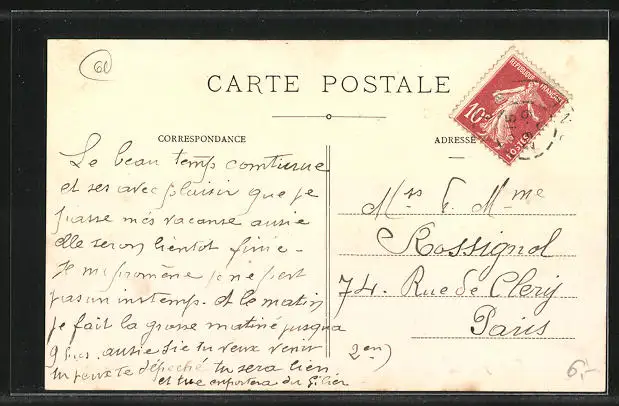 60
CARTE POSTALE
REPUBLIQUE FRANÇAISE
10c
POSTES
CORRESPONDANCE
ADRESSE
Le beau temp comtinue
et ses avec plaisir que je
passe mes vacanse ausie
elle seron bientot finie -
Je me promène je ne pert
pas un instemp. et le matin
je fait la grasse matiné jusqua
9 ausie sie tu veux venir
tu peux te dépeché tu sera bien
et tue emportera du
Mrs Mme
Rossignol
74. Rue de Clery
Paris
2en)
6,-